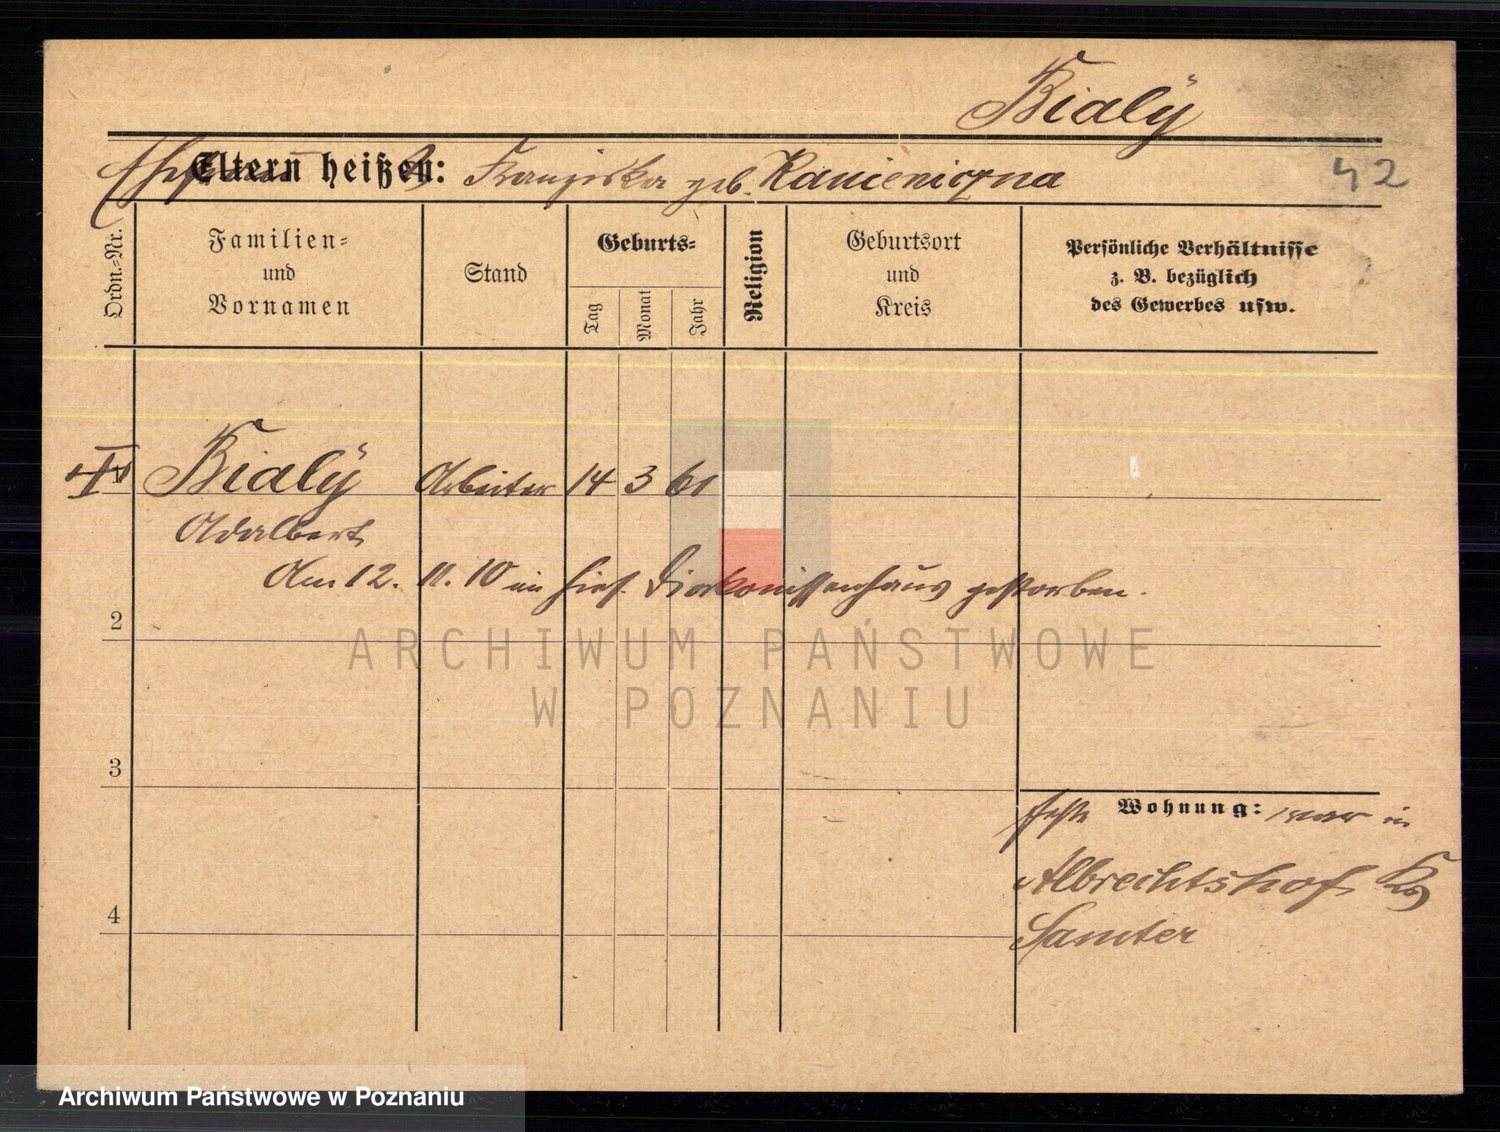 Bialÿ
Eltern heißen: Franziska geb. Kamieniczna
42
Ordn.-Nr.
Familien-
und
Vornamen
Stand
Geburts-
Tag
Monat
Jahr
Religion
Geburtsort
und
Kreis
Persönliche Verhältnisse
z. B. bezüglich
des Gewerbes usw.
Bialÿ Arbeiter 14 3 61
Adalbert
Am 12. 11. 10 im hies. Diakonissenhaus gestorben.
2
ARCHIWUM PAŃSTWOWE
W POZNANIU
3
Wohnung: war in
Albrechtshof Kr
Samter
4
Archiwum Państwowe w Poznaniu